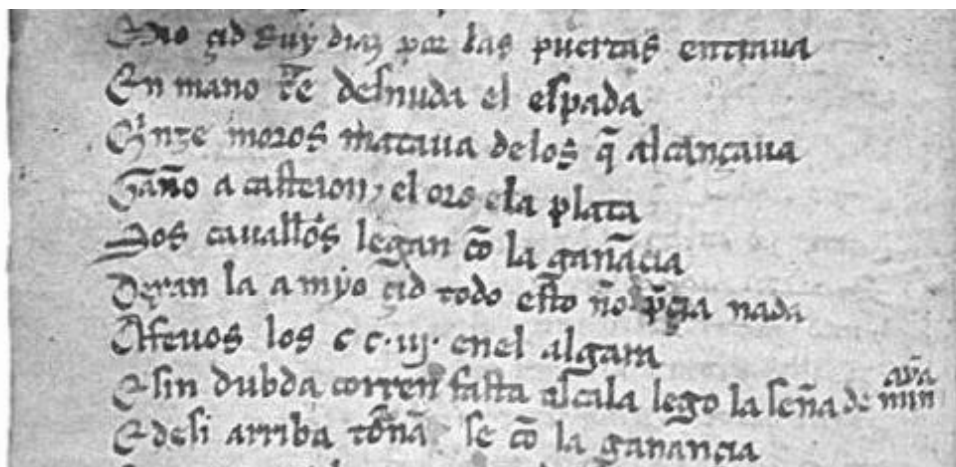 Mio çid Ruy diaz por las puertas entraua
En mano tr̄e desnuda el espada
Qⁱnze moros mataua delos q̄ alcançaua
Gan̄o a casteion, el oro ela plata
Sos cauall̄os legan cō la gan̄açia
Dexan la a myo çid todo esto n̄o p̄çia nada
Afeuos los c c·iij· enel algara
E sin dubda corren fasta alcala lego la sen̄a de min aỹa
E desi arriba tōna se cō la ganançia